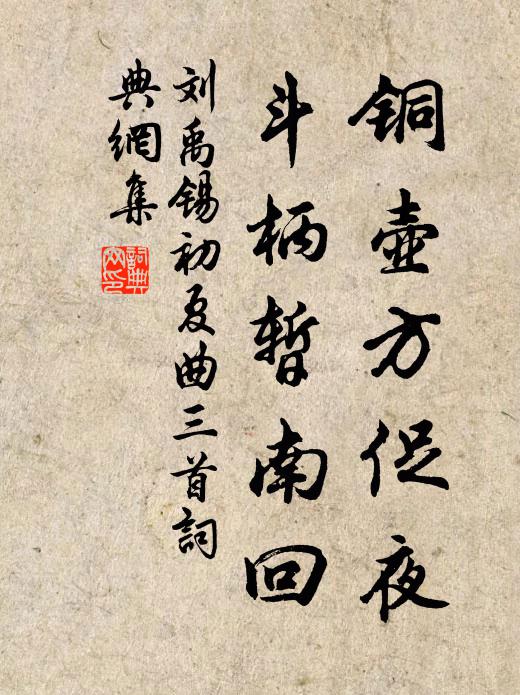 铜壶方促夜
斗柄暂南回
刘禹锡初夏曲三首词
典網集
詞典
文印